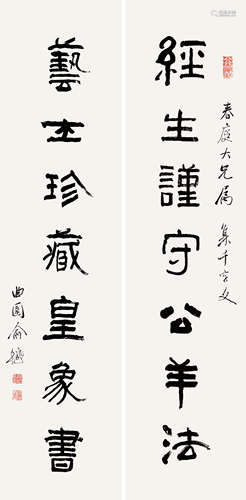 經生謹守公羊法
春庭大兄屬 集千字文
藝士珍藏皇象書
曲園俞樾